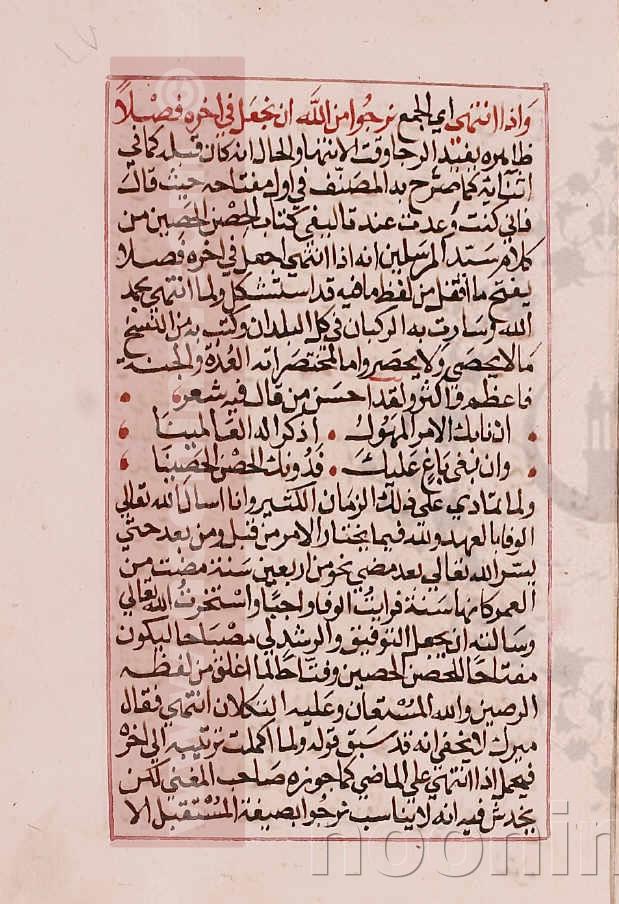 واذا انتهى اي الجمع نرجوا من الله ان نجعل في اخره فصلا
ظاهره يفيد الرجا وقت الانتها والحال انه كان قبله كما في
اثنائه كما صرح به المصنف في اول مفتاحه حيث قال
فاني كنت وعدت عند تاليفي كتاب الحصن الحصين من
كلام سيد المرسلين انه اذا انتهى اجعل في اخره فصلا
يفتح ما اقفل من لفظ ما فيه قد استشكل ولما انتهى بحمد
الله وسارت به الركبان في كل البلدان وكتب به من النسخ
ما لا يحصى ولا يحصر واما المختصر انه العدة والجنة
فاعظم واكثر ولقد احسن من قال فيه شعر
ان نابك الامر المهول اذكر اله العالمينا
وان بغى باغ عليك فدونك الحصن الحصينا
ولما تمادي على ذلك الزمان الكثير وانا اسال الله تعالى
الوفا بالعهد ولله فيما يختار الامر من قبل ومن بعد حتى
يسر الله تعالى بعد مضي نحو من اربعين سنة مضت من
العمر كانها سنة فرايت الوفا واجبا واستخرت الله تعالى
وسالته ان يجعل التوفيق والرشد لي مصباحا ليكون
مفتاحا للحصن الحصين وفتاحا لما اغلق من لفظه
الرصين والله المستعان وعليه التكلان انتهى فقال
ميرك لا يخفى انه قد سبق قوله ولما اكملت ترتيبه الى اخره
فيحمل اذا انتهى على الماضي كما جوزه صاحب المغني لكن
يخدش فيه انه لا يناسب نرجوا بصيغة المستقبل الا
noorin